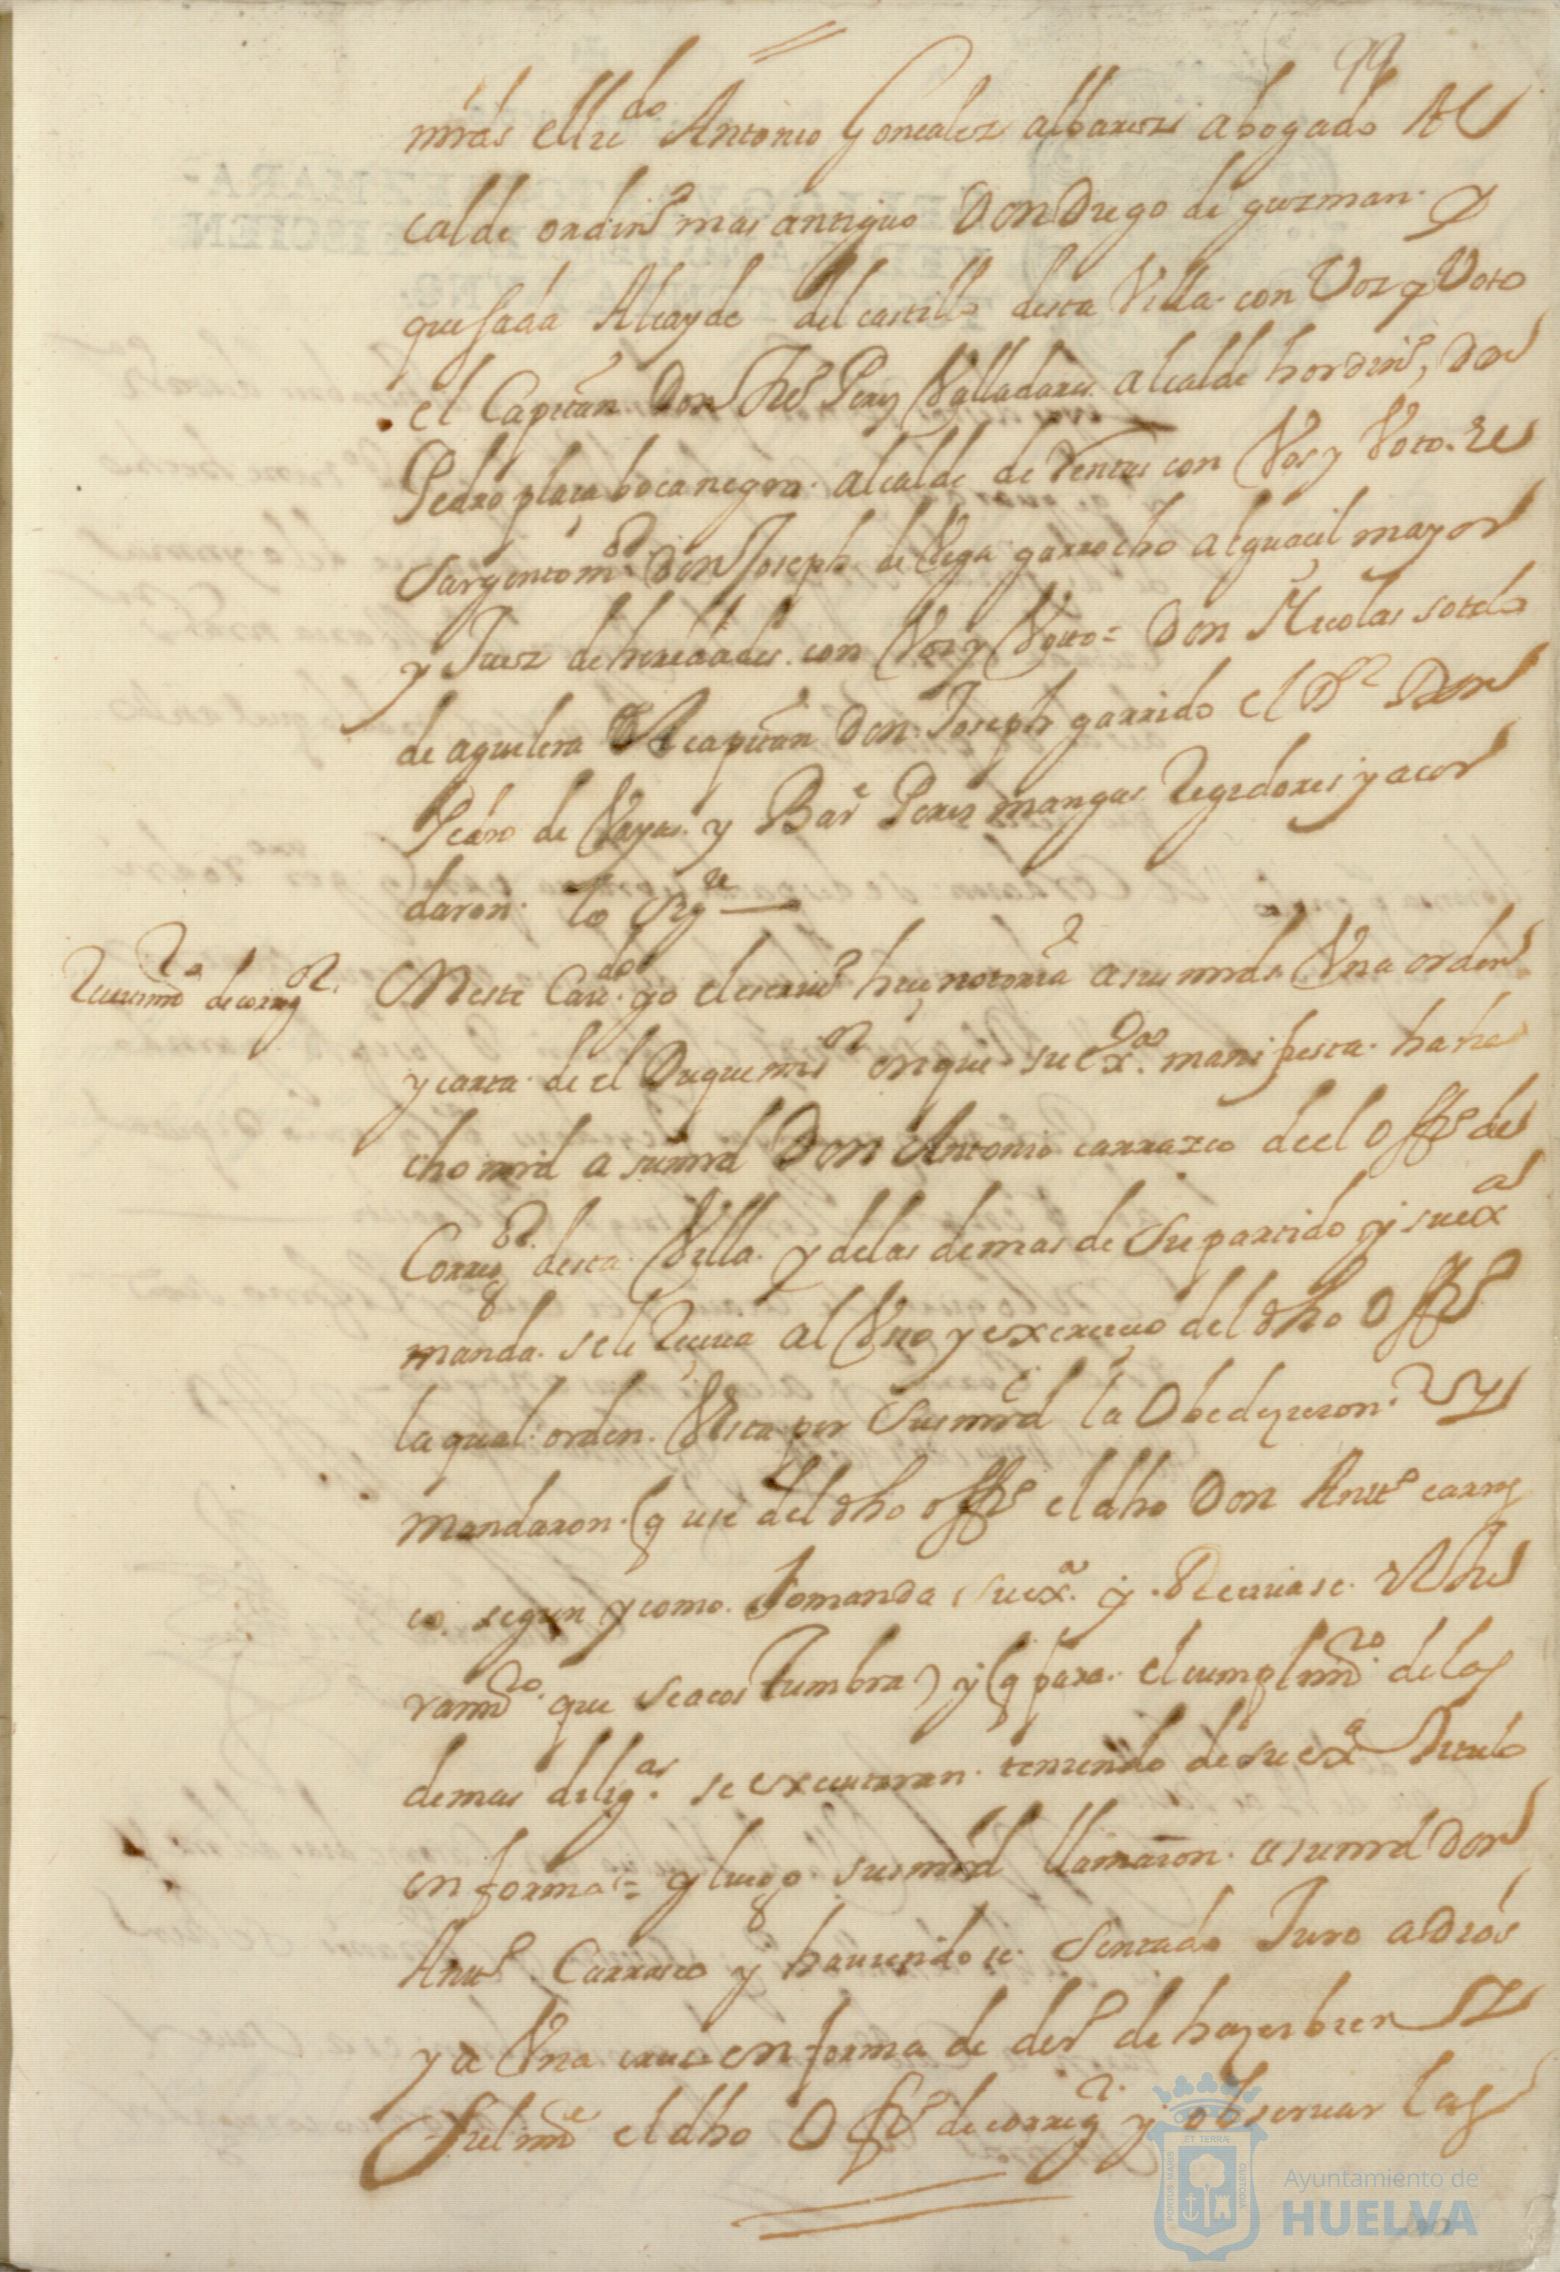 99
mrds el lizdo Antonio Gonzalez albarez abogado Al
calde ordino mas antiguo Don Diego de guzman y
quesada Alcayde del castillo desta Villa con Voz y Voto
el Capitan Don Perez Valladares alcalde hordino, Don
Pedro plaça bocanegra alcalde de Ventas con Vos y Voto el
Sargento mor Don Joseph de Vega garrocho alguaçil mayor
y Juez de heredades con Voz y Votto = Don Nicolas sotelo
de aguilera el capitan Don Joseph garrido el Dr Don
Pedro de Vayas y Bare Perez mangas Regidores y acor
daron lo sigte
Reçeuimto de corregor
En este Caudo yo el escriuo hiçe notoria a sus mrds Vna orden
y carta de el Duque mi sr en que su exa manifiesta ha he
cho mrd a su mrd Don Antonio carrazco de el offo de
Corregor desta Villa y de las demas de su partido y su exa
manda se le Reçiua al Vso y exerçiçio del dho offo
la qual orden Vista por sus mrdes la Obedeçieron y
mandaron q use del dho offo el dho Don Antto carras
co segun y como lo manda su exa y Reciuase el Ju
ramto que se acostumbra y q para el cumplimto de las
demas diligas se executaran teniendo de su exa titulo
en forma = y luego sus mrds llamaron a su mrd Don
Antto Carrasco y hauiendose sentado Juro a Dios
y a Vna cruz en forma de dro de hazer bien y
fielmte el dho Offo de corregr y obseruar las
PORTUS MARIS
ET TERRÆ
CUSTODIA
Ayuntamiento de
HUELVA